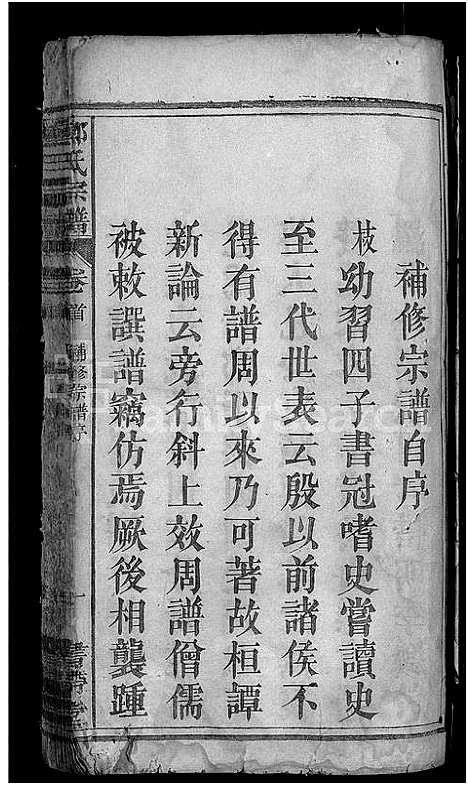 補修宗譜自序
枝幼習四子書冠嗜史嘗讀史
至三代世表云殷以前諸侯不
得有譜周以來乃可著故桓譚
新論云旁行斜上效周譜僧儒
被敕譔譜竊仿焉厥後相襲踵
氏宗譜
卷首
補修宗譜序
一